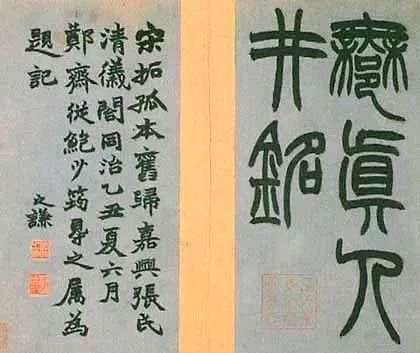 鄦真人
井銘
宋拓孤本舊歸嘉興張氏
清儀閣同治乙丑夏六月
鄭齋從鮑少筠㝵之屬為
題記
之謙